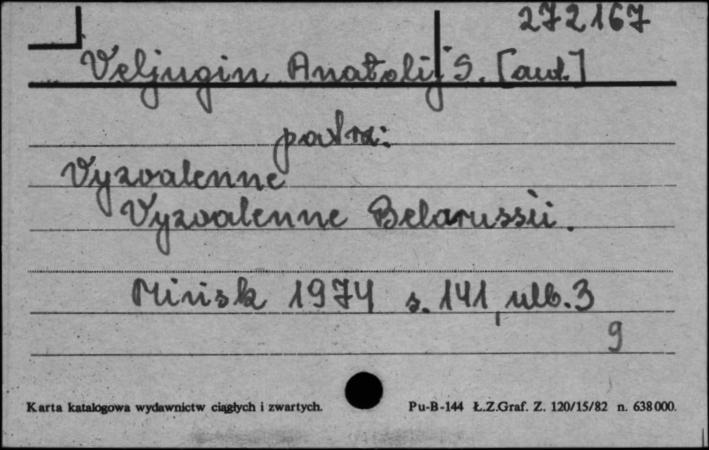 272167
Veljugin Anatolij S. [aut.]
patrz:
Vyzvalenne
Vyzvalenne Belarussii.
Mińsk 1974 s. 141, nlb. 3
9
Karta katalogowa wydawnictw ciągłych i zwartych. Pu-B-144 Ł.Z.Graf. Z. 120/15/82 n. 638000.